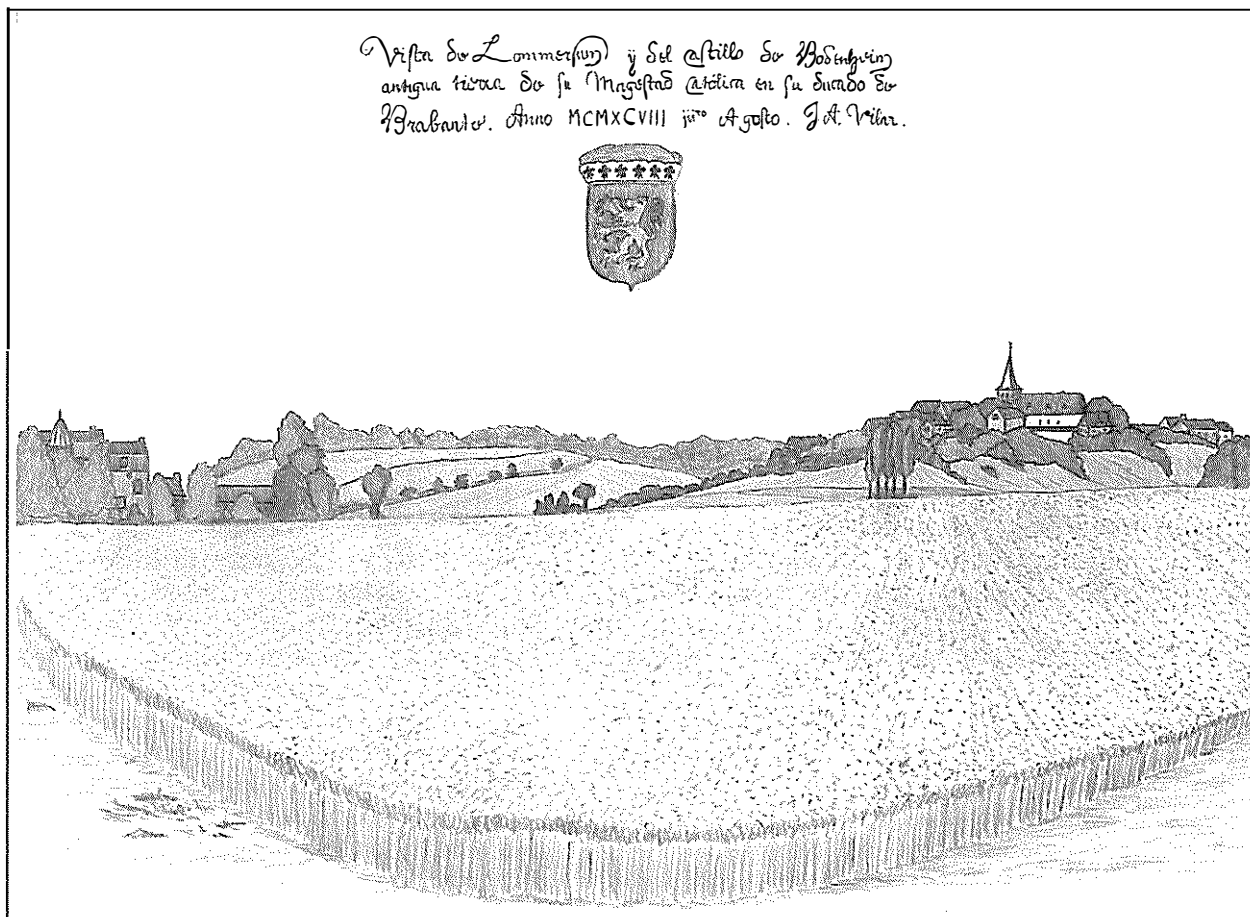 Vista de Lommersum ÿ del castillo de Bodenheim
antigua tierra de su Magestad Católica en su ducado de
Brabante. Anno MCMXCVIII Agosto. J.A. Vilar.